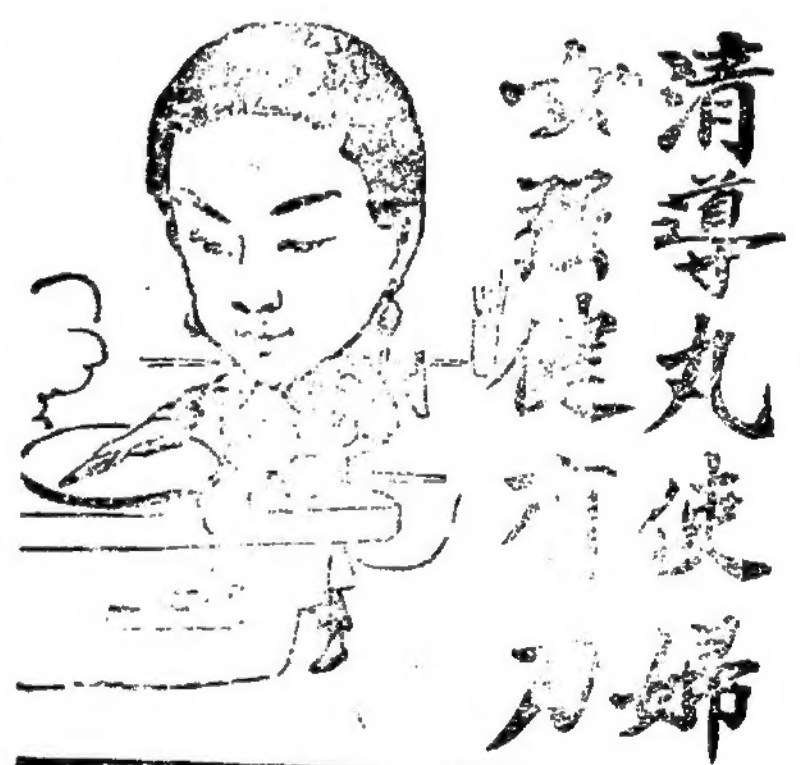 清導丸使婦
女健力